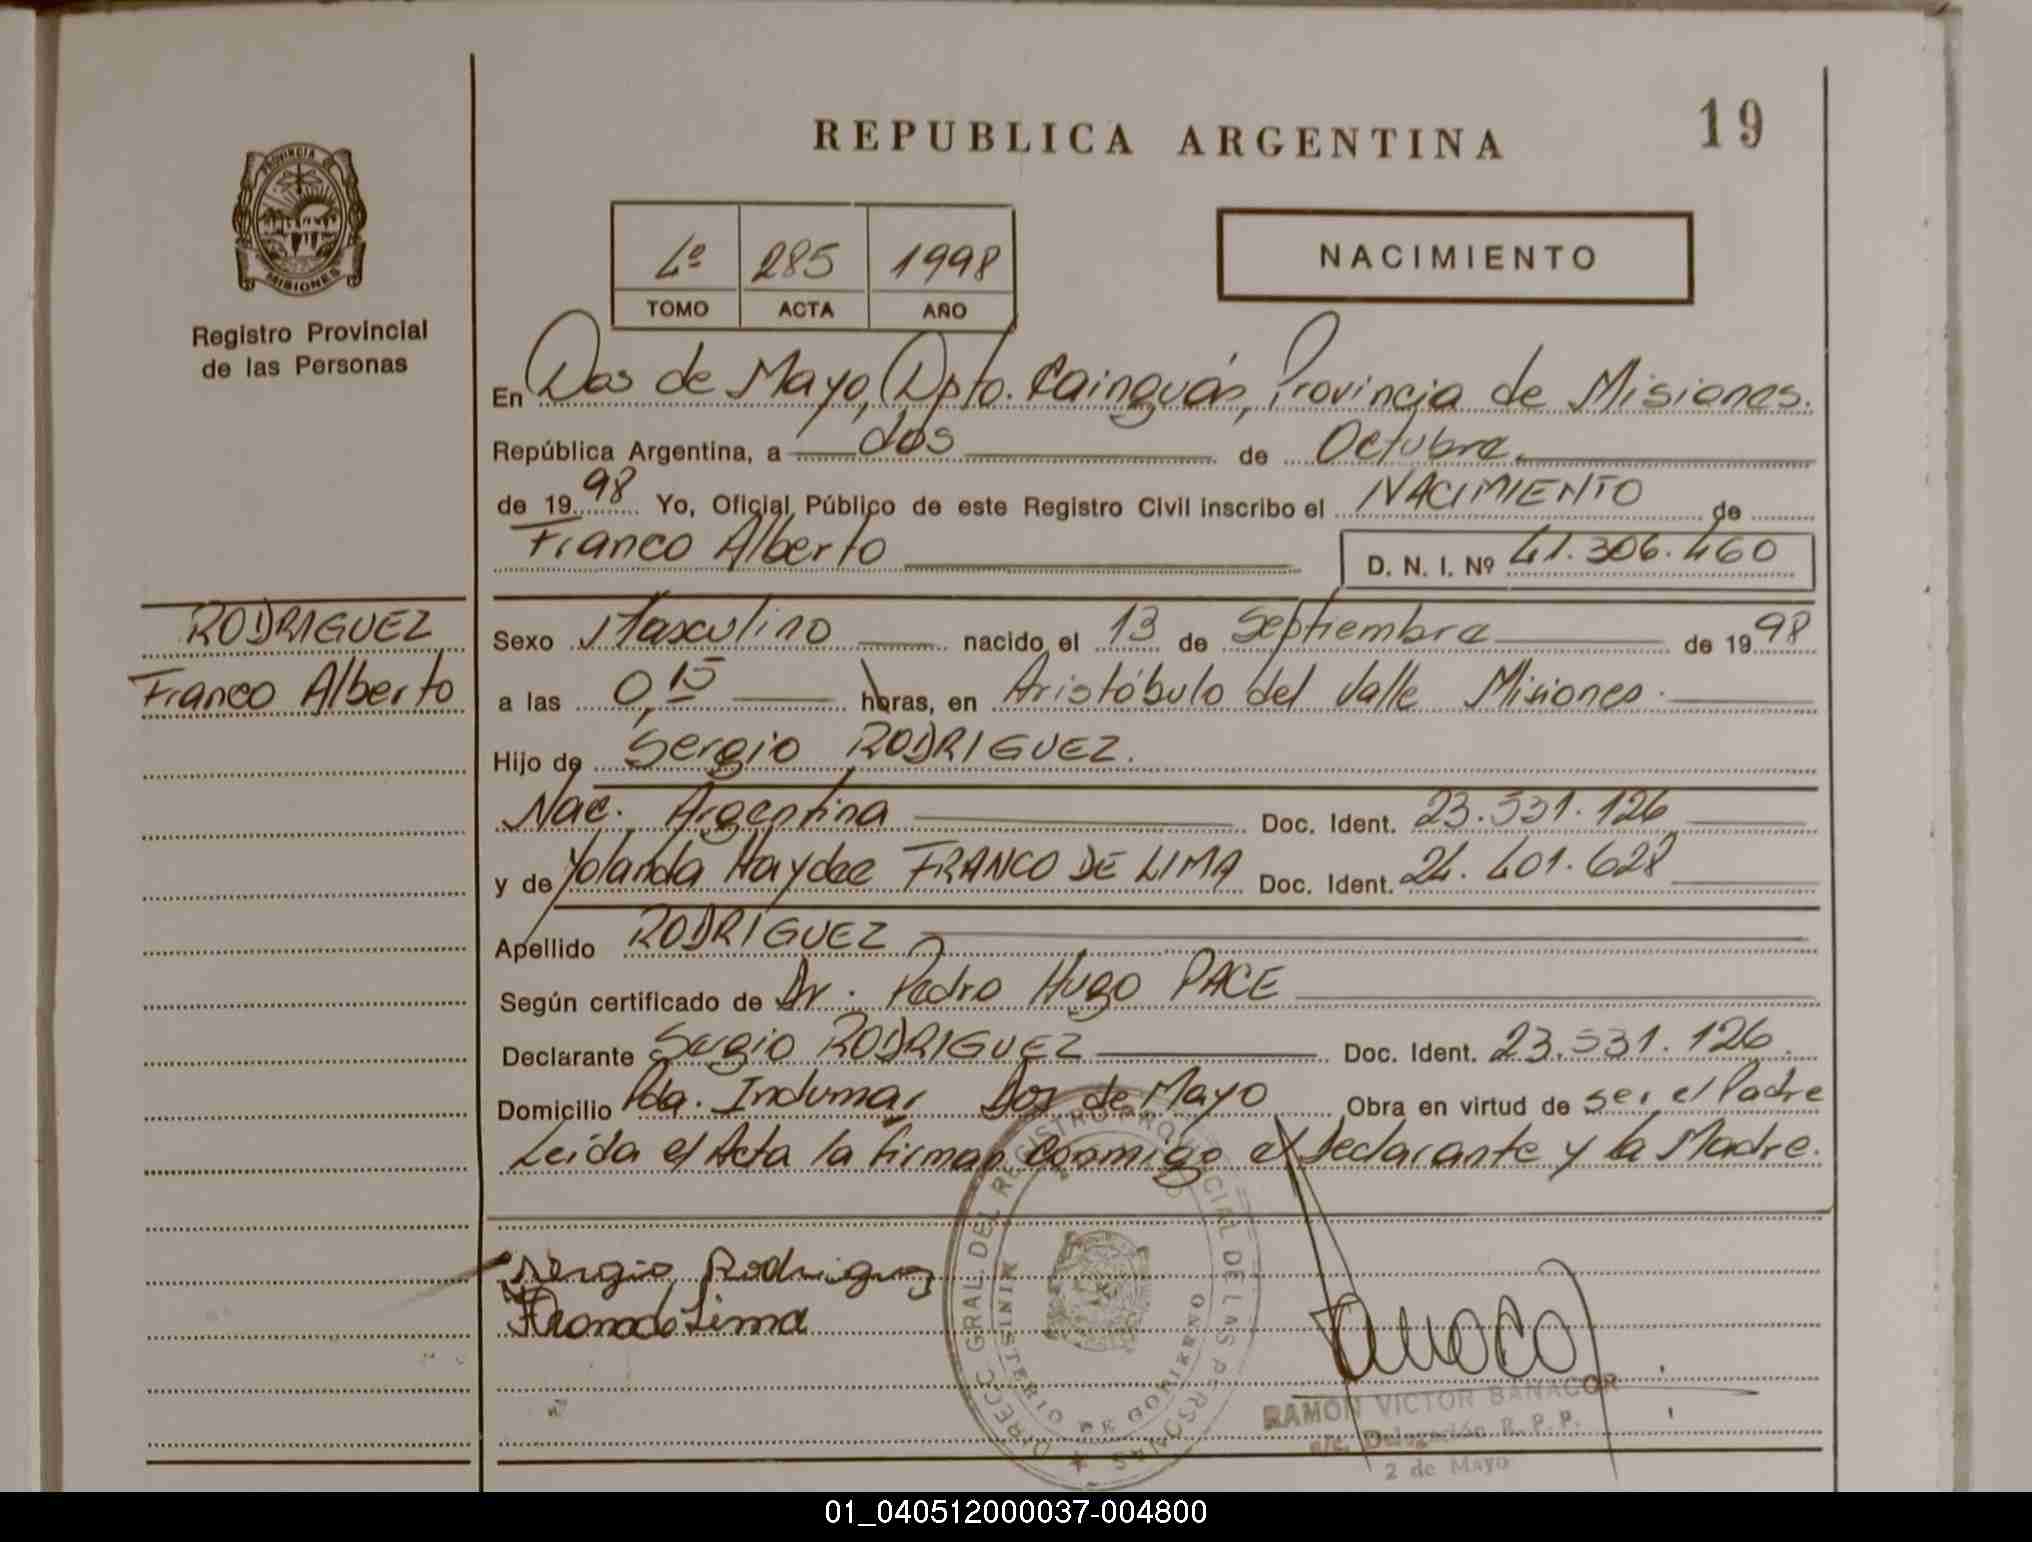 REPUBLICA ARGENTINA
19
PROVINCIA DE
MISIONES
Registro Provincial
de las Personas
Lº 285 1998
TOMO ACTA AÑO
NACIMIENTO
En Dos de Mayo, Dpto. Cainguás, Provincia de Misiones.
República Argentina, a dos de Octubre
de 1998 Yo, Oficial Público de este Registro Civil inscribo el NACIMIENTO de
Franco Alberto D. N. I. Nº 41.306.460
RODRIGUEZ
Franco Alberto
Sexo Masculino nacido el 13 de Septiembre de 1998
a las 0,15 horas, en Aristóbulo del Valle Misiones.
Hijo de Sergio RODRIGUEZ.
Nac. Argentina Doc. Ident. 23.531.126
y de Yolanda Haydee FRANCO DE LIMA Doc. Ident. 24.401.628
Apellido RODRIGUEZ
Según certificado de Dr. Pedro Hugo PACE
Declarante Sergio RODRIGUEZ Doc. Ident. 23.531.126.
Domicilio Pda. Indumar Dos de Mayo Obra en virtud de ser el Padre
Leída el Acta la firman conmigo el Declarante y la Madre.
Sergio Rodriguez
Lima
DIRECC. GRAL. DEL REGISTRO PROVINCIAL DE LAS PERSONAS
MINISTERIO DE GOBIERNO
RAMON VICTOR BANACOR
a/c. Delegación R. P. P.
2 de Mayo
01_040512000037-004800